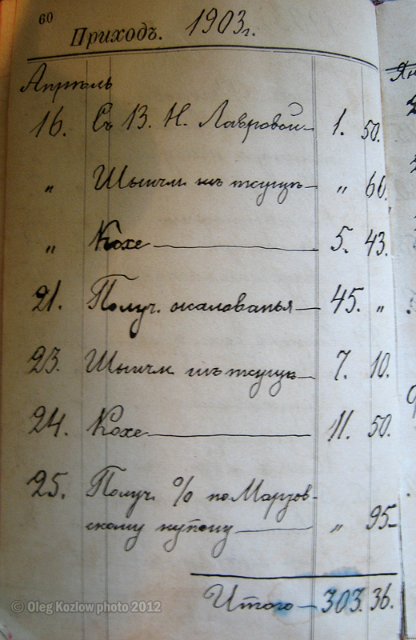 60
Приходъ. 1903 г.
Апрѣль
16. Съ В. Н. Лавровой 1. 50.
" " 60.
" Кохе 5. 43.
21. Получ. жалованья 45. "
23. 7. 10.
24. Кохе 11. 50.
25. Получ. % по Марков-
скому купону " 95
Итого 303. 36.
© Oleg Kozlow photo 2012